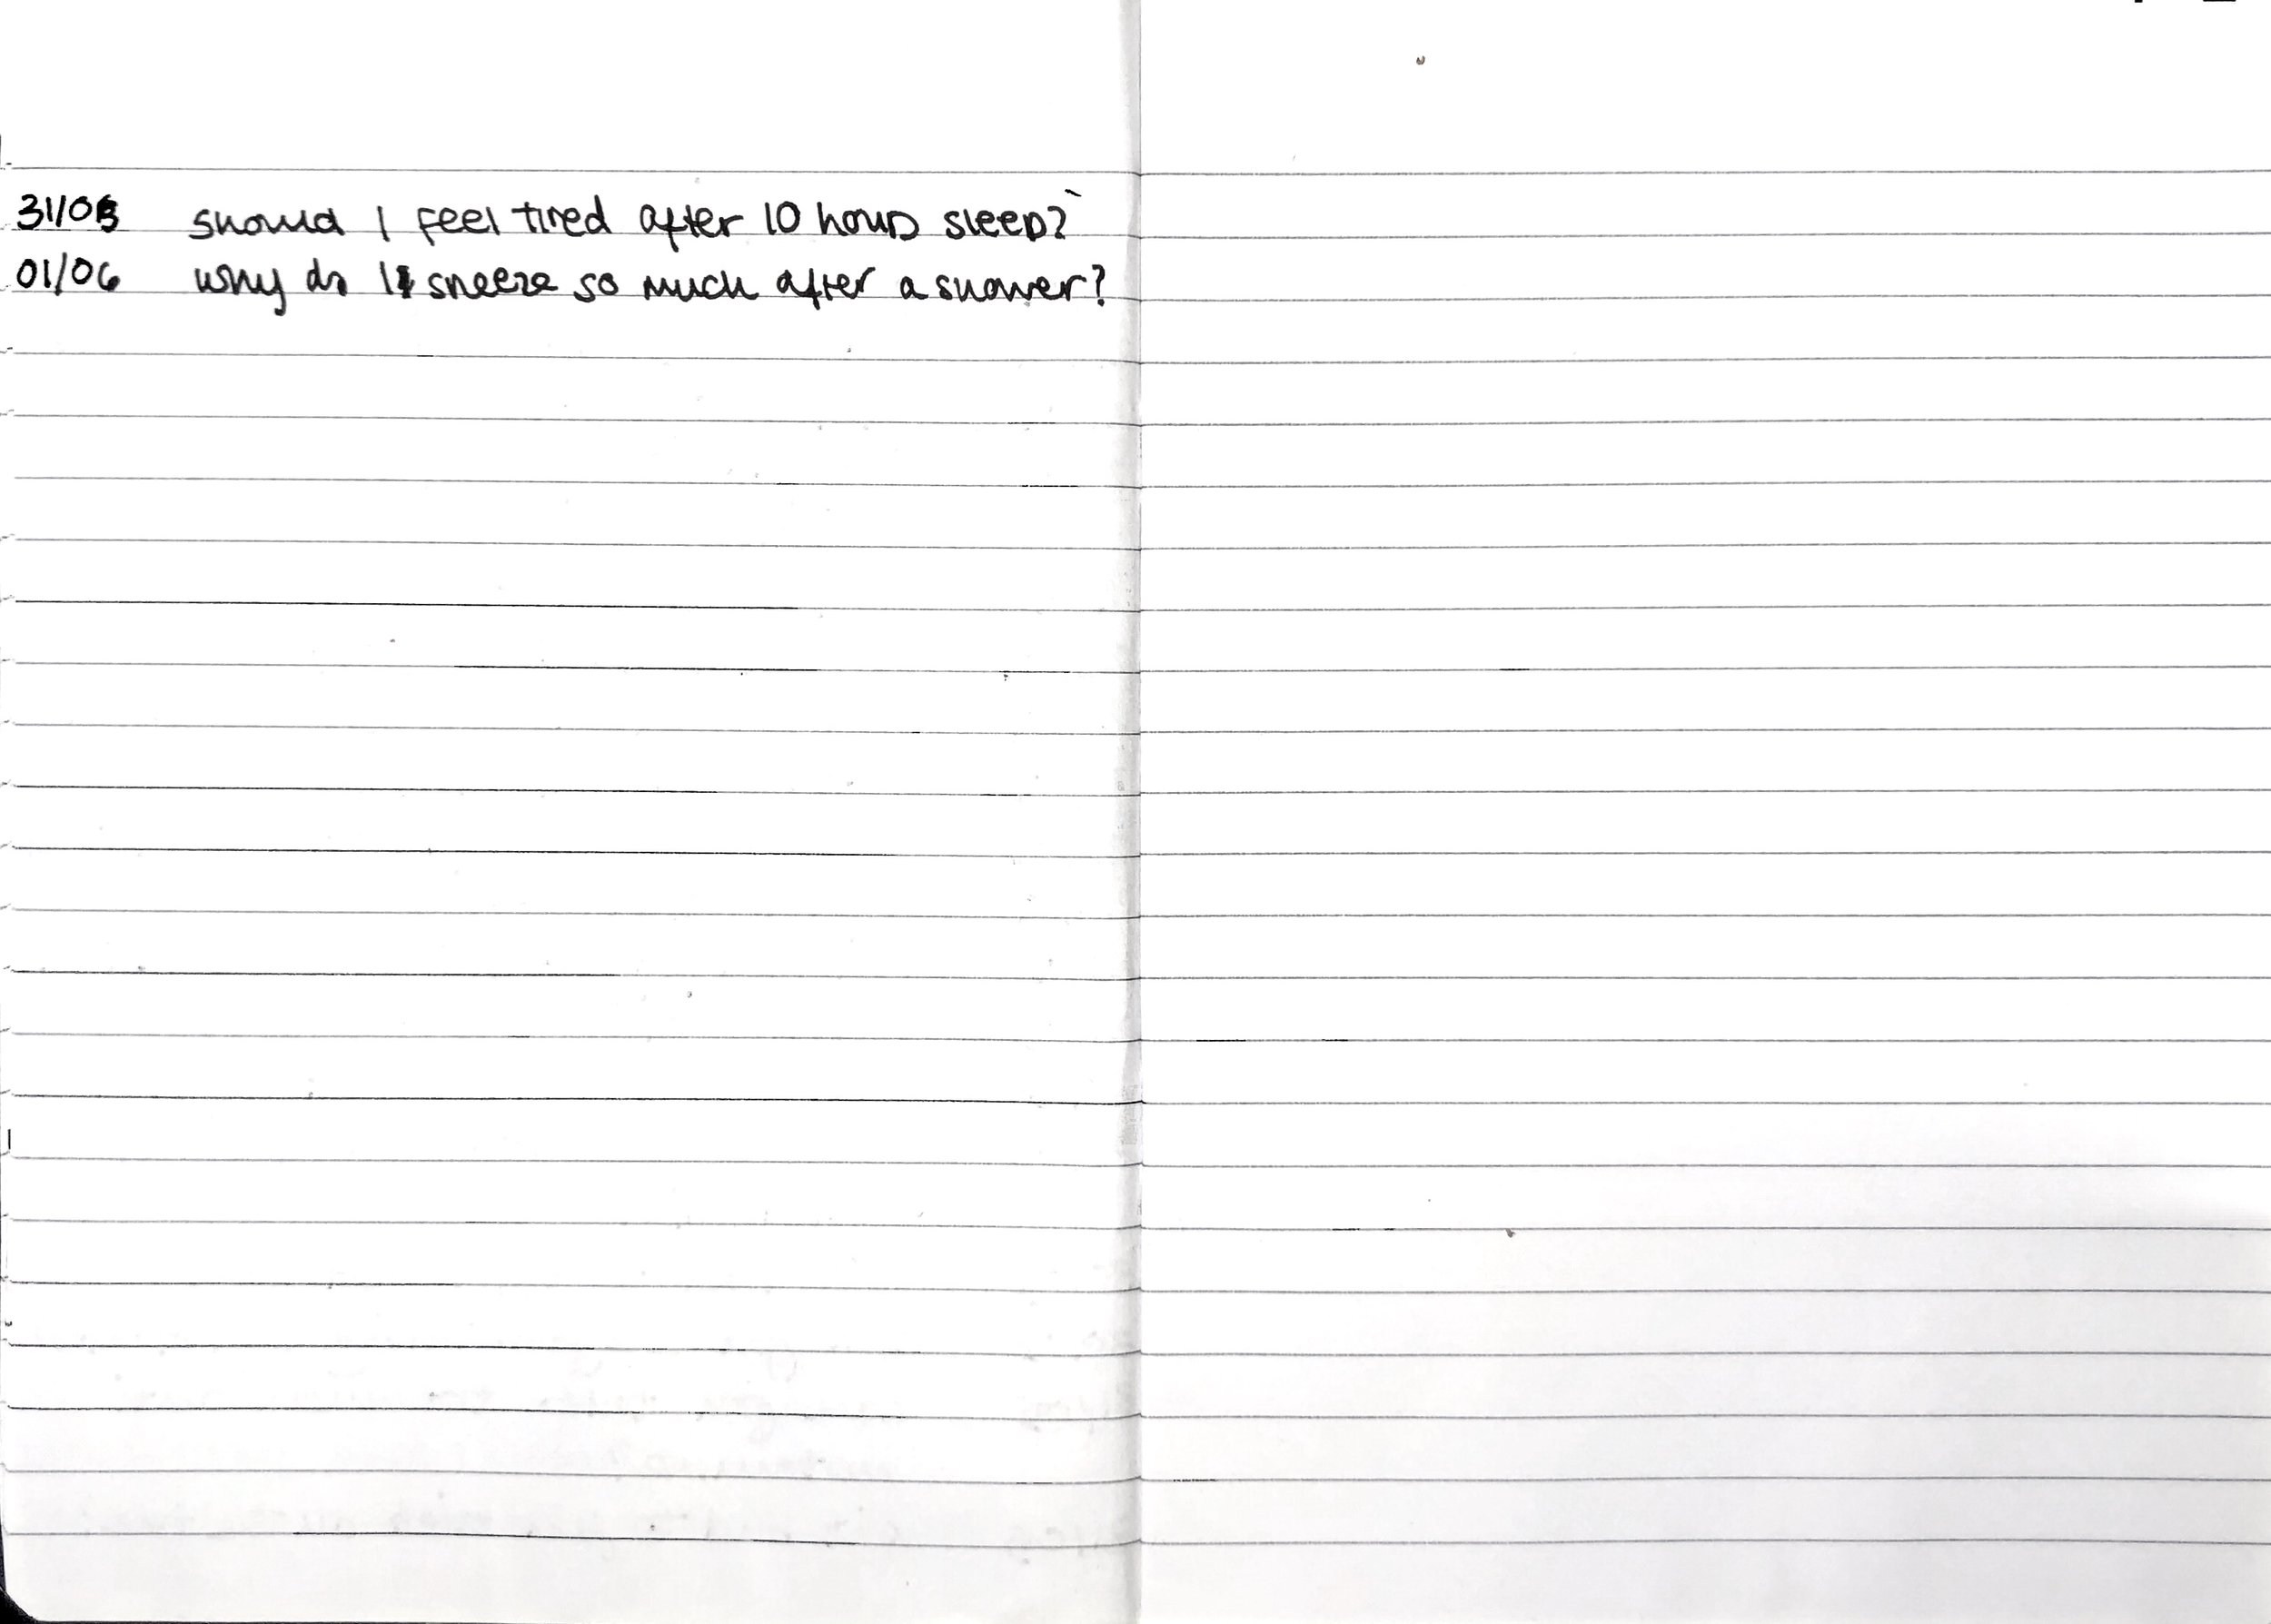 31/05 should I feel tired after 10 hours sleep?
01/06 why do I sneeze so much after a shower?